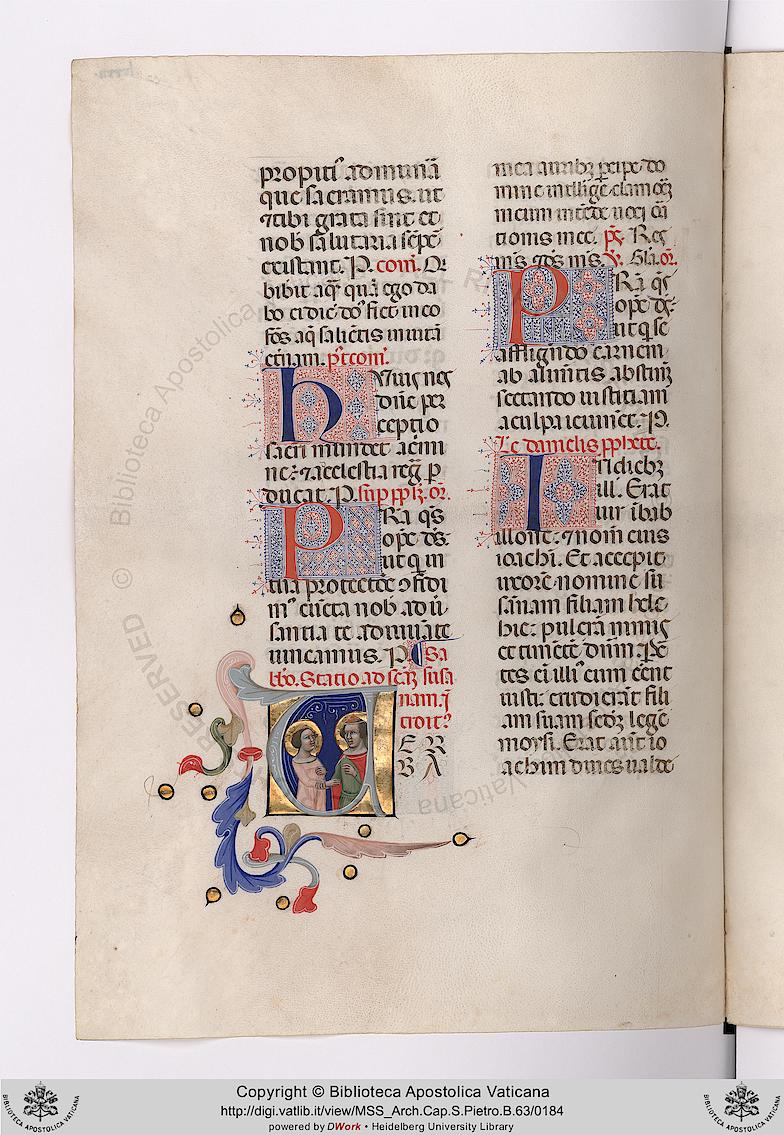 propiti⁹ ad muna
que sacramus. ut
⁊ tibi grata sint et
nob salutaria sēpe
existant. P. com̄. Q̄
bibit aq̄ quā ego da
bo ei dic̄ dōs fiet in eo
fōs aq̄ salientis in uitā
etnam. p̄tcom̄.
Huius nos
dn̄e per
ceptio
sacri mundet acrimi
ne: ⁊ a celestia regn̄ p
ducat. P. sup ppl̄z. or̄.
PRa q̄s
ōpc̄ ds̄.
ut q̄ in
tua protectōe ↄfidi
m⁹ cuncta nob aduer
santia te adiuuāte
uincamus. P. Sa
bbo. Statio ad scāz susa
nam. ī
troit⁹
VER
BA
mea auribz p̄cipe do
mine intellige clamorē
meum intēde uoci orā
tionis mee. p̄s. Rex
m̄s ⁊ ds̄ m̄s. V̄. Glā. or̄.
PRa q̄s
ōpc̄ ds̄:
ut q̄ se
affligēdo carnem
ab alimētis abstinēt
sectando iustitiam
a culpa ieiunēt. P.
Lc̄ danielis pph̄ete.
In diebz
ill. Erat
uir ī bab
illone. ⁊ nom̄ eius
ioachī. Et accepit
uxorē nomine su
sānam filiam hele
hie: pulcrā nimis
et timētē dn̄m. Parē
tes ei illi⁹ cum ēent
iusti: erudierūt fili
am suam scd̄z legē
moysi. Erat aut̄ io
achim diues ualde
© Biblioteca Apostolica Vaticana
Copyright © Biblioteca Apostolica Vaticana
http://digi.vatlib.it/view/MSS_Arch.Cap.S.Pietro.B.63/0184
powered by DWork • Heidelberg University Library
BIBLIOTECA APOSTOLICA VATICANA
BIBLIOTECA APOSTOLICA VATICANA